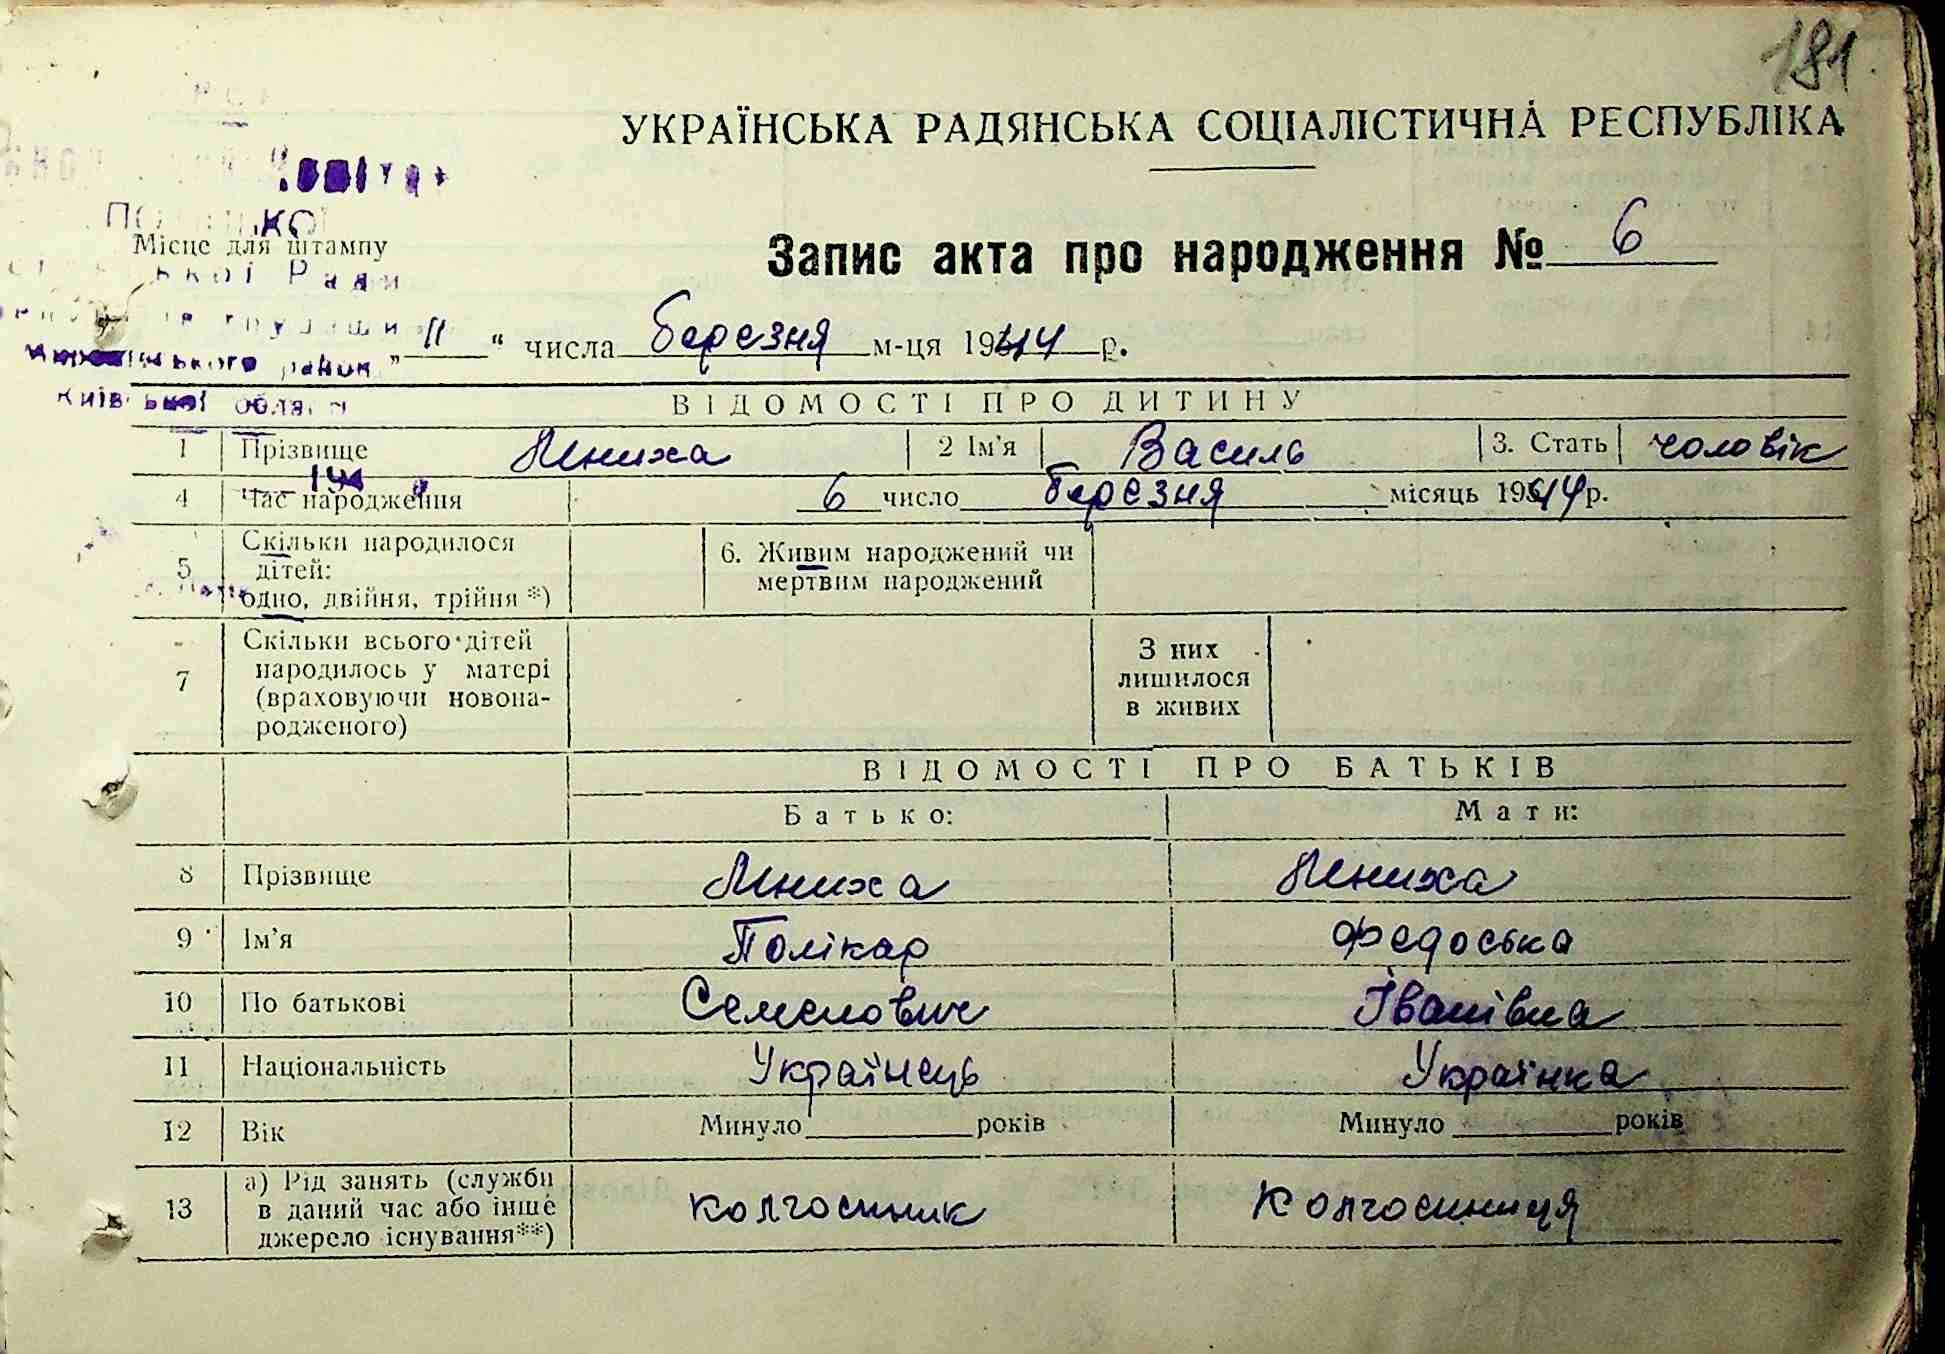 181
УКРАЇНСЬКА РАДЯНСЬКА СОЦІАЛІСТИЧНА РЕСПУБЛІКА
Місце для штампу
Запис акта про народження № 6
Ради
„11“ числа березня м-ця 1944 р.
Київської області
ВІДОМОСТІ ПРО ДИТИНУ
1 Прізвище Мниха 2 Ім'я Василь 3. Стать чоловік
194
4 Час народження 6 число березня місяць 1944 р.
5 Скільки народилося дітей: одно, двійня, трійня *) 6. Живим народжений чи мертвим народжений
7 Скільки всього дітей народилось у матері (враховуючи новонародженого) З них лишилося в живих
ВІДОМОСТІ ПРО БАТЬКІВ
Батько: Мати:
8 Прізвище Мниха Мниха
9 Ім'я Полікар Федоська
10 По батькові Семенович Іванівна
11 Національність Українець Українка
12 Вік Минуло ______ років Минуло ______ років
13 а) Рід занять (служби в даний час або інше джерело існування**) колгоспник Колгоспниця